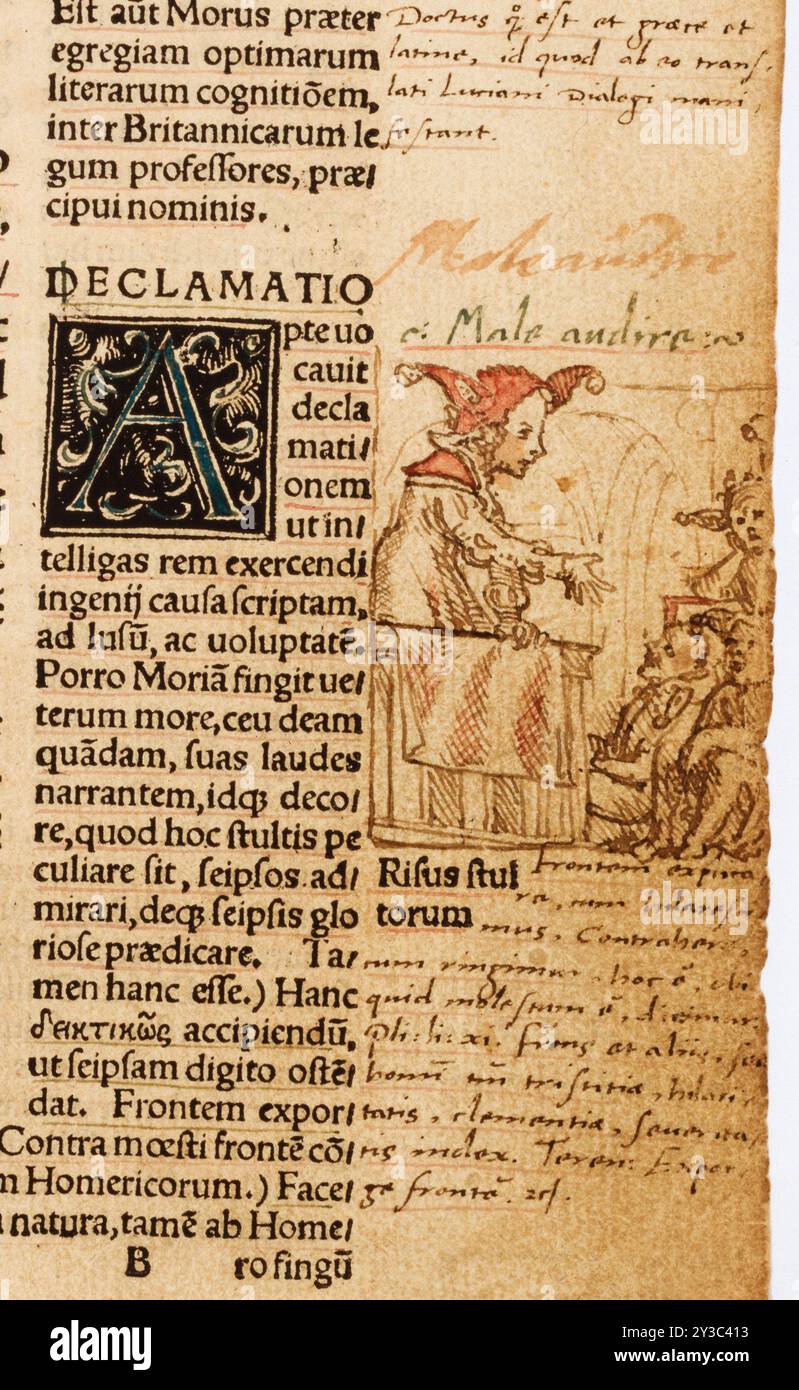 Est aūt Morus præter
egregiam optimarum
literarum cognitiōem,
inter Britannicarum le
gum professores, præ/
cipui nominis.
Doctus est et græce et
latine, id quod ab eo trans/
lati Luciani Dialogi mani
festant.
DECLAMATIO
Male audire
Male audire
Apte uo
cauit
decla
mati/
onem
ut in/
telligas rem exercendi
ingenij causa scriptam,
ad lusū, ac uoluptatē.
Porro Moriā fingit ue/
terum more, ceu deam
quādam, suas laudes
narrantem, idq; deco/
re, quod hoc stultis pe
culiare sit, seipsos ad/
mirari, deq; seipsis glo
riose prædicare. Ta/
men hanc esse.) Hanc
δεικτικῶς accipiendū,
ut seipsam digito ostē/
dat. Frontem expor/
Contra mœsti frontē cō/
m Homericorum.) Face/
natura, tamē ab Home/
B ro fingū
Risus stul
torum
frontem
mus, Contrahere
cum ringimur, hoc ē,
quid molestum ē,
Pli: li: xi. frons et aliis,
homī tristitiæ, hilari
tatis, clementiæ, severita
tis index. Teren: Expor
ge frontē.
alamy
Image ID: 2Y3C413
www.alamy.com